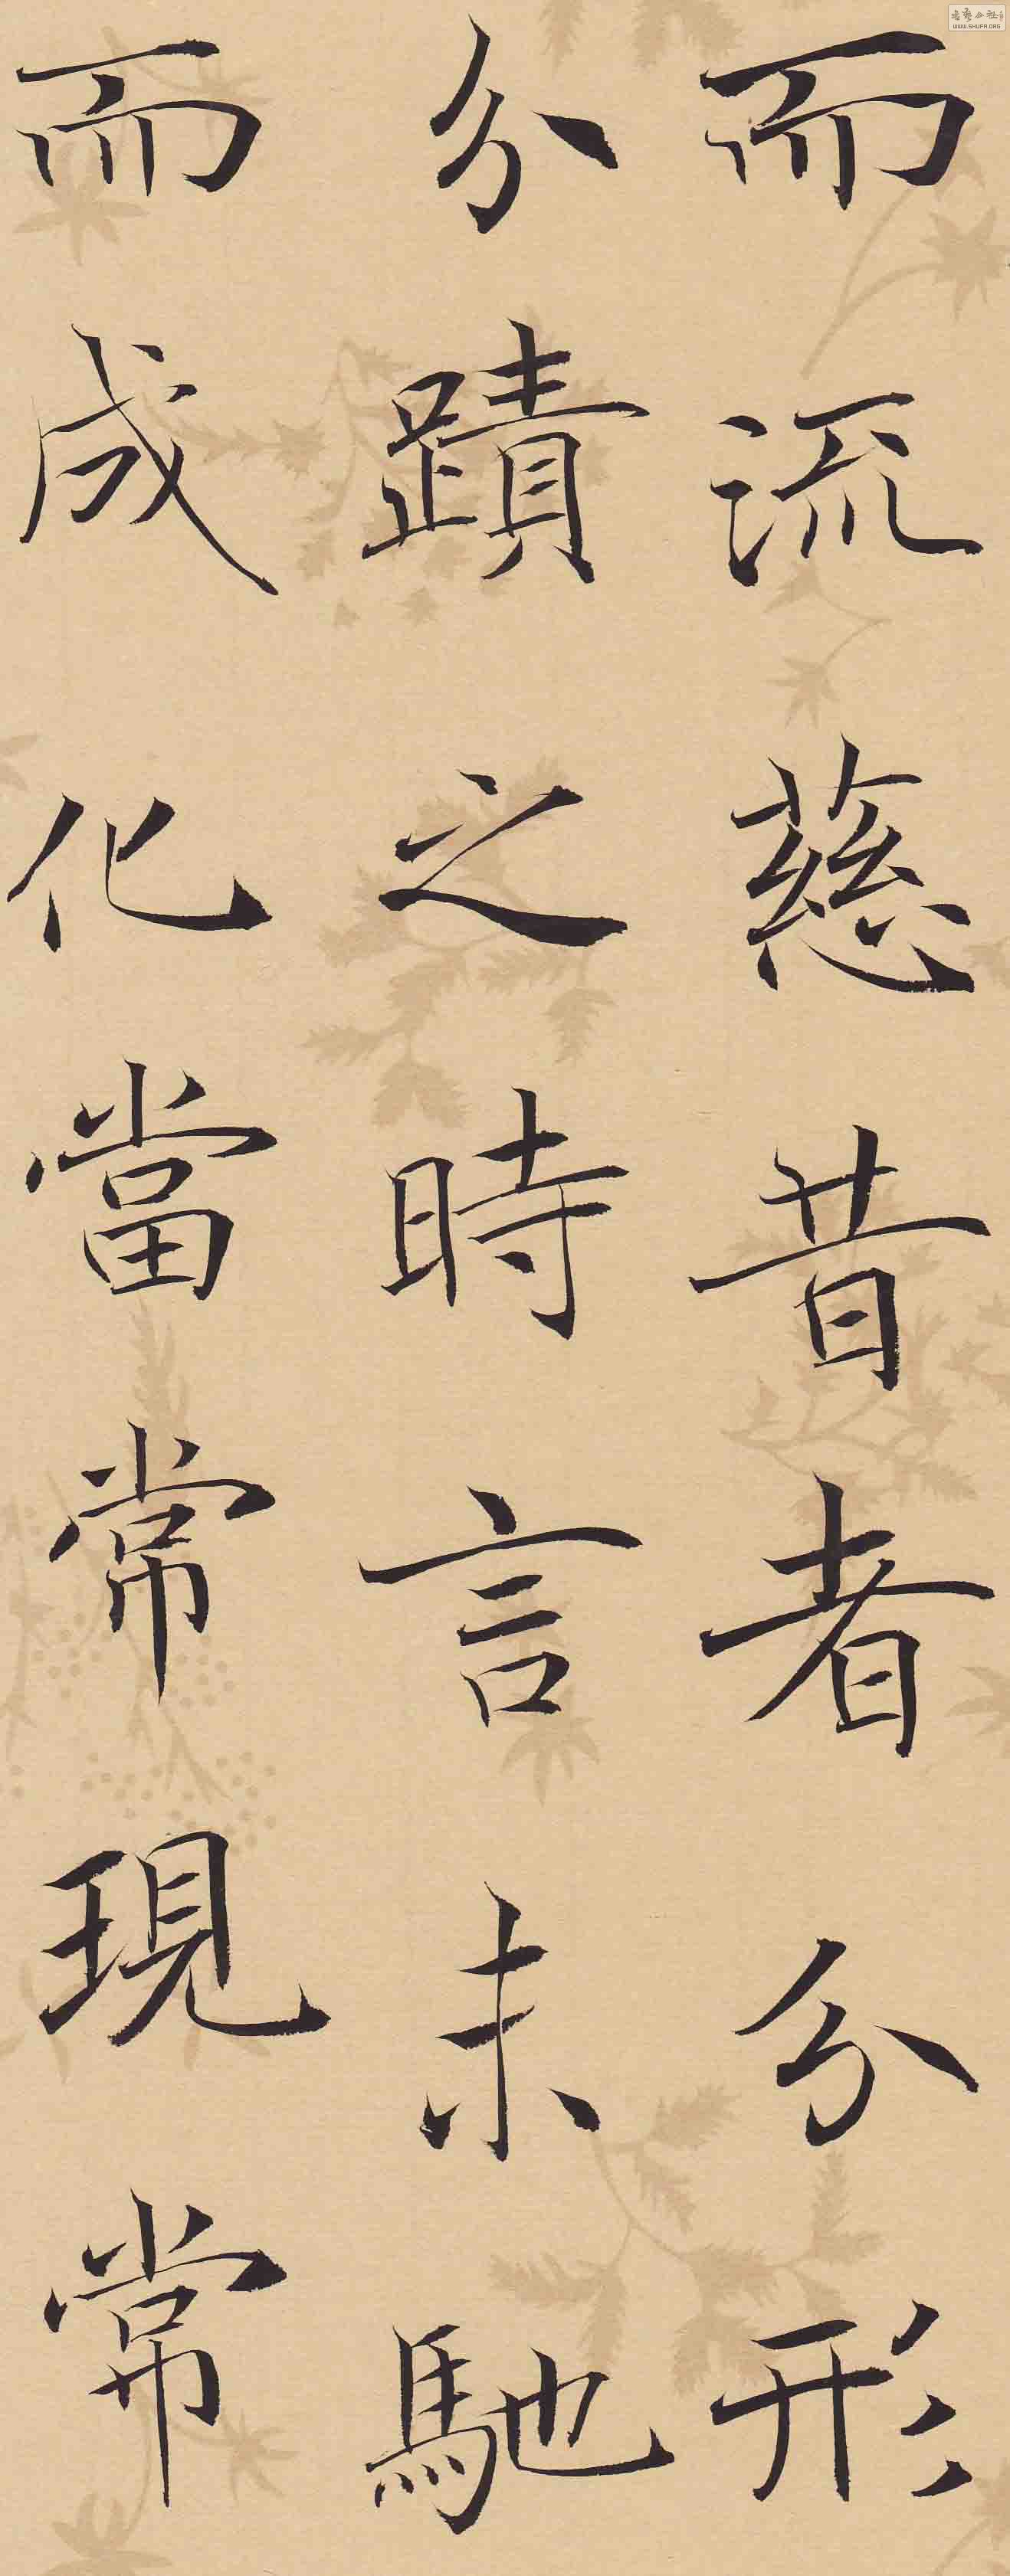 而流慈昔者分形
分蹟之時言未馳
而成化當常現常
WWW.SHUFA.ORG